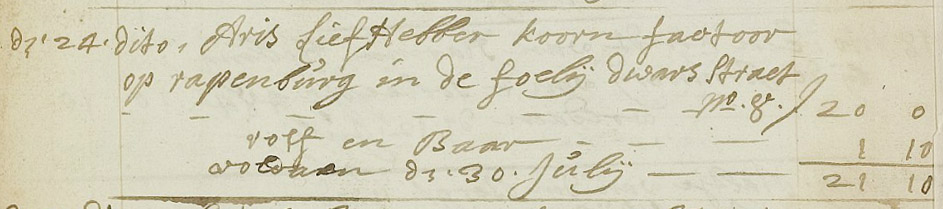 dz. 24. dito, Aris Liefhebber koorn factoor
op rapenburg in de foelij dwars straet
No. 8. 20 0
roef en Baar 1 10
voldaan dz. 30. Julij 21 10